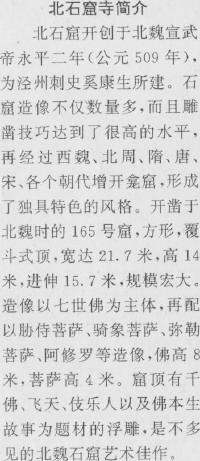 北石窟寺简介
北石窟开创于北魏宣武
帝永平二年(公元509年),
为泾州刺史奚康生所建。石
窟造像不仅数量多,而且雕
凿技巧达到了很高的水平,
再经过西魏、北周、隋、唐、
宋、各个朝代增开龛窟,形成
了独具特色的风格。开凿于
北魏时的165号窟,方形,覆
斗式顶,宽达21.7米,高14
米,进伸15.7米,规模宏大。
造像以七世佛为主体,再配
以胁侍菩萨、骑象菩萨、弥勒
菩萨、阿修罗等造像,佛高8
米,菩萨高4米。窟顶有千
佛、飞天、伎乐人以及佛本生
故事为题材的浮雕,是不多
见的北魏石窟艺术佳作。